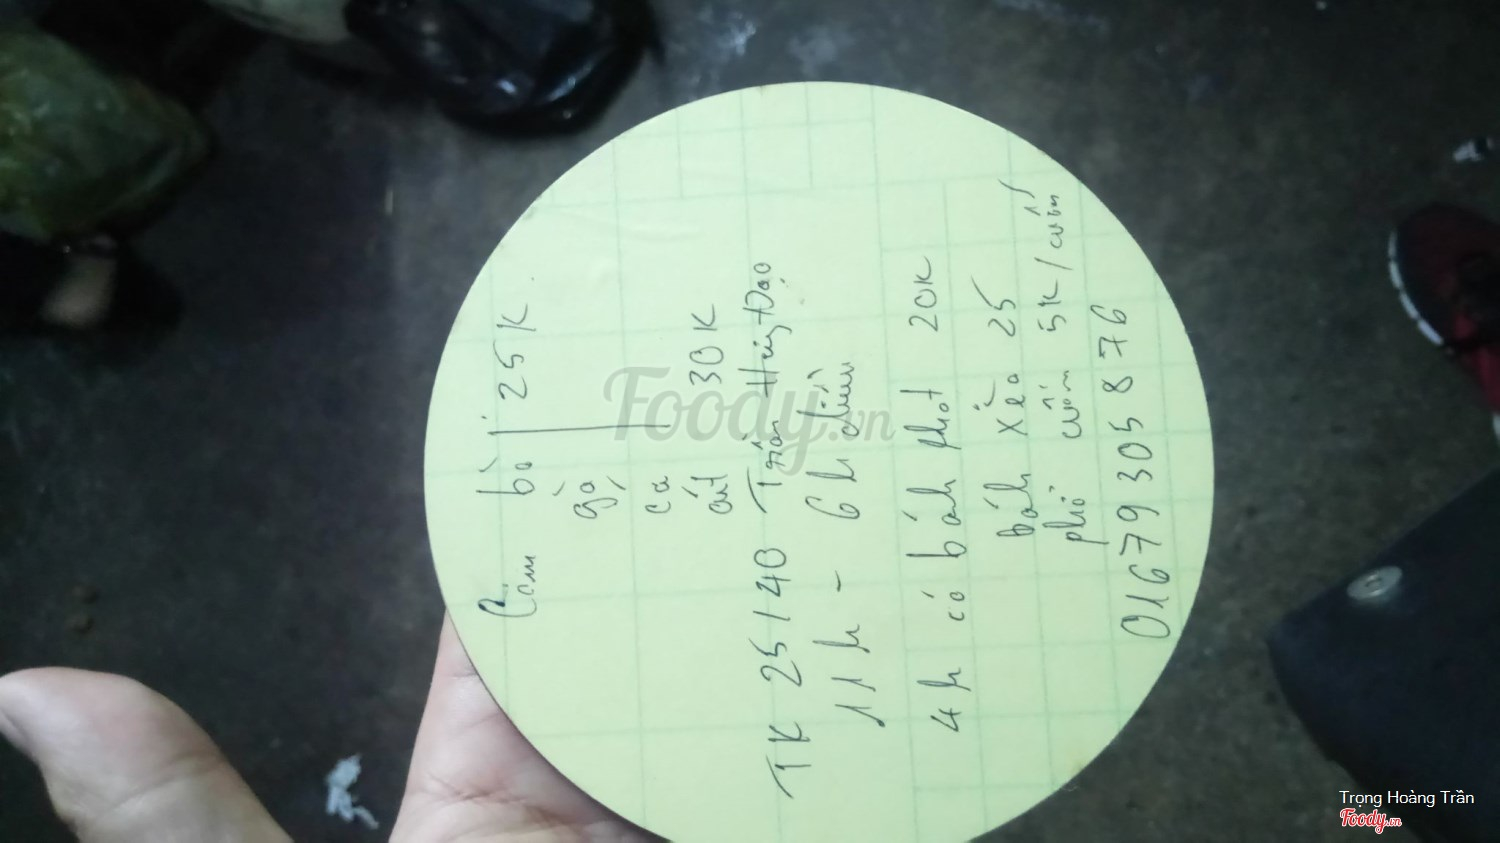 Cơm bò 25K
gà
cá
út 30K
TK 25/40 Trần Hưng Đạo
11h - 6h chiều
4h có bánh phot 20K
bánh xèo 25
phở cuốn 5K/cuốn
01679305876
Foody.vn
Trọng Hoàng Trần
Foody.vn